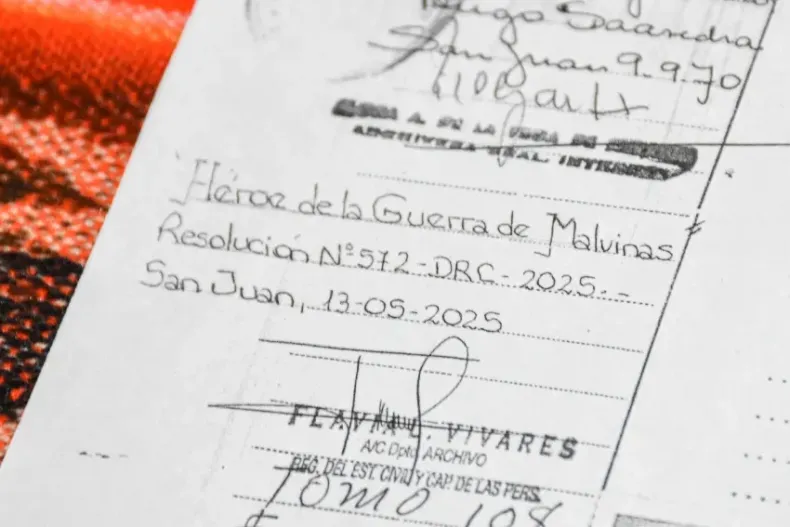 Hugo Saavedra
San Juan 9.9.70
Héroe de la Guerra de Malvinas
Resolución Nº 572-DRC-2025.-
San Juan, 13-05-2025
FLAVIA L. VIVARES
A/C Dpto ARCHIVO
REG. DEL EST. CIVIL Y CAP. DE LAS PERS.
Tomo 108